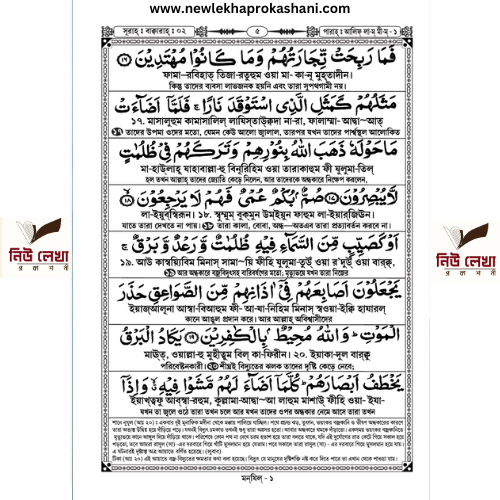 www.newlekhaprokashani.com
সূরাহ্ : বাক্বারাহ্ : ০২ ৫ পারাহ্ : আলিফ্ লা-ম্ মী-ম্ - ১
فَمَا رَبِحَتْ تِّجَارَتُهُمْ وَمَا كَانُوْا مُهْتَدِيْنَ ﴿١٦﴾
ফামা-রবিহাত্ তিজা-রতুহুম ওয়া মা- কা-নূ মুহ্তাদীন।
কিন্তু তাদের ব্যবসা লাভজনক হয়নি এবং তারা সুপথগামী নয়।
مَثَلُهُمْ كَمَثَلِ الَّذِى اسْتَوْقَدَ نَارًا ۚ فَلَمَّآ اَضَآءَتْ
১৭. মাসালুহুম কামাসালিল্ লাযিস্তাউক্বদা না-রা, ফালাম্মা-আদ্বা~আত্
১৭ তাদের উপমা ওদের মতো, যেমন কেউ আলো জ্বালাল, তারপর যখন তাদের পার্শ্বস্থল আলোকিত
مَاحَوْلَهٗ ذَهَبَ اللّٰهُ بِنُوْرِهِمْ وَتَرَكَهُمْ فِىْ ظُلُمٰتٍ
মা-হাওলাহূ যাহাবাল্লা-হু বিনূরিহিম ওয়া তারাকাহুম ফী যুলুমা-তিল্
হল তখন আল্লাহ্ তাদের জ্যোতি কেড়ে নিলেন, আর তাদেরকে অন্ধকারে নিক্ষেপ করলেন,
لَّايُبْصِرُوْنَ ﴿١٧﴾ صُمٌّۢ بُكْمٌ عُمْىٌ فَهُمْ لَا يَرْجِعُوْنَ ﴿١٨﴾
লা-ইয়ুব্স্বিরূন। ১৮. স্বুম্মুম্ বুক্মুন্ উম্ইয়ুন ফাহুম লা-ইয়ার্জিঊন।
যাতে তারা দেখতে না পায়। ১৮ তারা কালা, বোবা, অন্ধ—অতএব তারা প্রত্যাবর্তন করবে না।
اَوْ كَصَيِّبٍ مِّنَ السَّمَآءِ فِيْهِ ظُلُمٰتٌ وَّرَعْدٌ وَّبَرْقٌ ۚ
১৯. আউ কাস্বয়্যিবিম মিনাস্ সামা~য়ি ফীহি যুলুমা-তুওঁ ওয়া র'দুওঁ ওয়া বারক্ব
১৯ আর অন্ধকারে বজ্রবিদ্যুৎসহ বারিবর্ষণের মতো; মৃত্যুভয়ে যখন তারা নিজের
يَجْعَلُوْنَ اَصَابِعَهُمْ فِىْٓ اٰذَانِهِمْ مِّنَ الصَّوَاعِقِ حَذَرَ
ইয়াজ্'আলূনা আস্বা-বি'আহুম ফী-আ-যা-নিহিম মিনাস্ স্বওয়া-ইক্বি হাযারল্
কানে আঙুল প্রদান করে। আর আল্লাহ্ অবিশ্বাসীদের
الْمَوْتِ ؕ وَاللّٰهُ مُحِيْطٌۢ بِالْكٰفِرِيْنَ ﴿١٩﴾ يَكَادُ الْبَرْقُ
মাউত্, ওয়াল্লা-হু মুহীত্বুম বিল্ কা-ফিরীন। ২০. ইয়াকা-দুল বার্ক্বু
পরিবেষ্টনকারী। ২০ শীঘ্রই বিদ্যুতের ঝলক তাদের দৃষ্টি কেড়ে নেবে;
يَخْطَفُ اَبْصَارَهُمْ ؕ كُلَّمَآ اَضَآءَ لَهُمْ مَّشَوْا فِيْهِ ۙ وَاِذَآ
ইয়াখ্ত্বফু আব্স্বা-রহুম, কুল্লামা-আদ্বা~আ লাহুম মাশাউ ফীহি ওয়া-ইযা-
যখন তা জ্বলে ওঠে তারা তখন চলে আর যখন তাদের ওপর অন্ধকার নেমে আসে তারা তখন
মন্‌যিল্ - ১
নিউ লেখা
প্রকাশনী
নিউ লেখা
প্রকাশনী